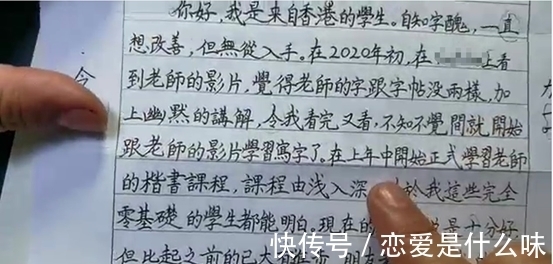 你好,我是来自香港的學生。自知字醜,一直
想改善,但無從入手。在2020年初,在 上看
到老師的影片,覺得老師的字跟字帖没兩樣,加
上幽默的講解,令我看完又看,不知不覺間就開始
跟老師的影片學習寫字了。在上年中開始正式學習老師
的楷書課程,課程由浅入深, 於我這些完全
零基礎的學生都能明白。現在的 是十分好
但比起之前的已大
今
快传号/恋爱是什么味